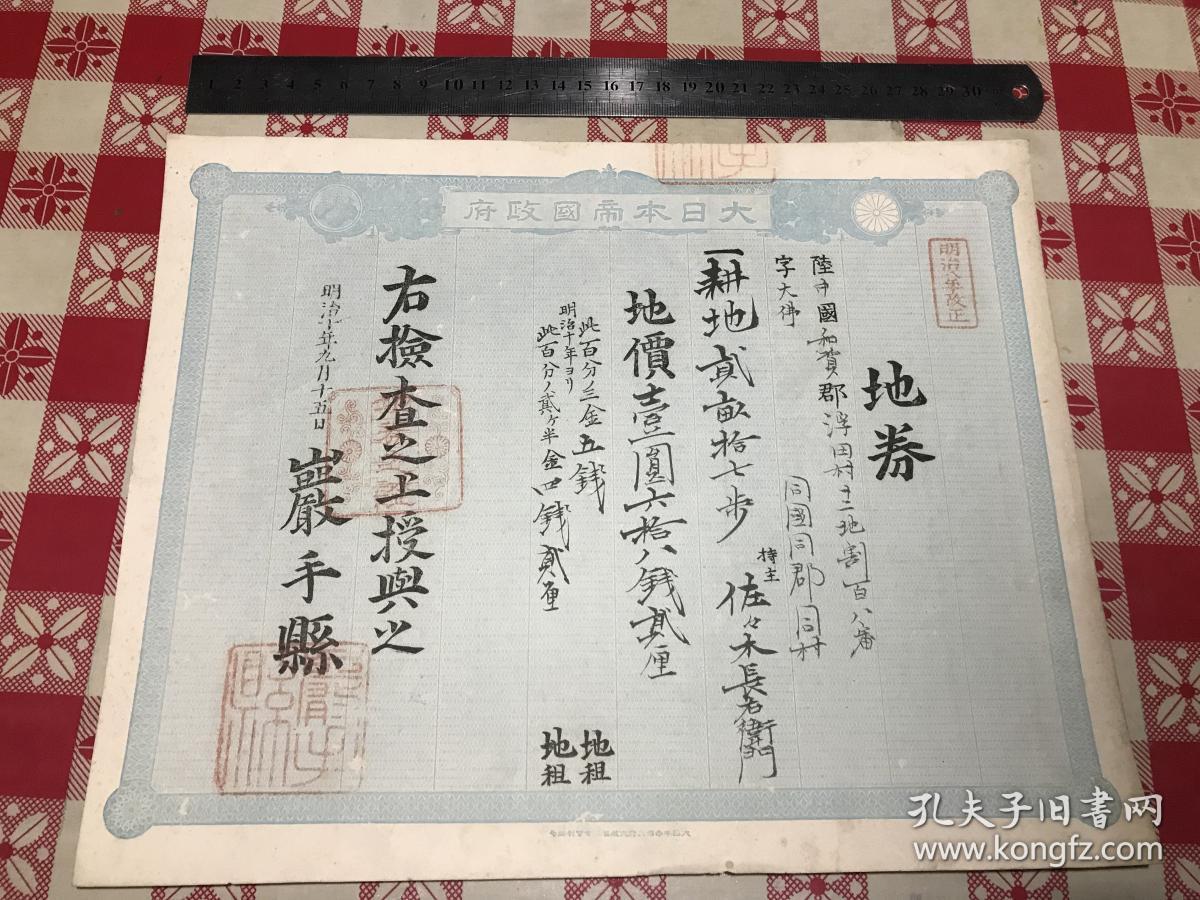 1 2 3 4 5 6 7 8 9 10 11 12 13 14 15 16 17 18 19 20 21 22 23 24 25 26 27 28 29 30
府政國帝本日大
明治八年改正
地券
陸中國和賀郡浮田村十二地割百八番
字大佛
同國同郡同村
持主 佐々木長右衛門
一耕地貳畝拾七歩
地價壹圓六拾八錢貳厘
此百分ノ三金五錢 地租
明治十年ヨリ
此百分ノ貳ケ半金四錢貳厘 地租
右撿査之上授與之
明治十年九月十五日
巖手縣
孔夫子旧书网
www.kongfz.com